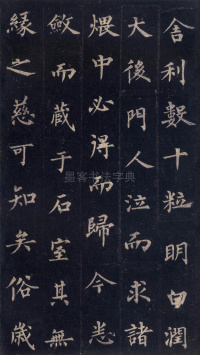 舍利數十粒明白潤
大後門人泣而求諸
煨中必得而歸今悉
斂而藏于石室其無
緣之慈可知矣俗歲
墨客书法字典